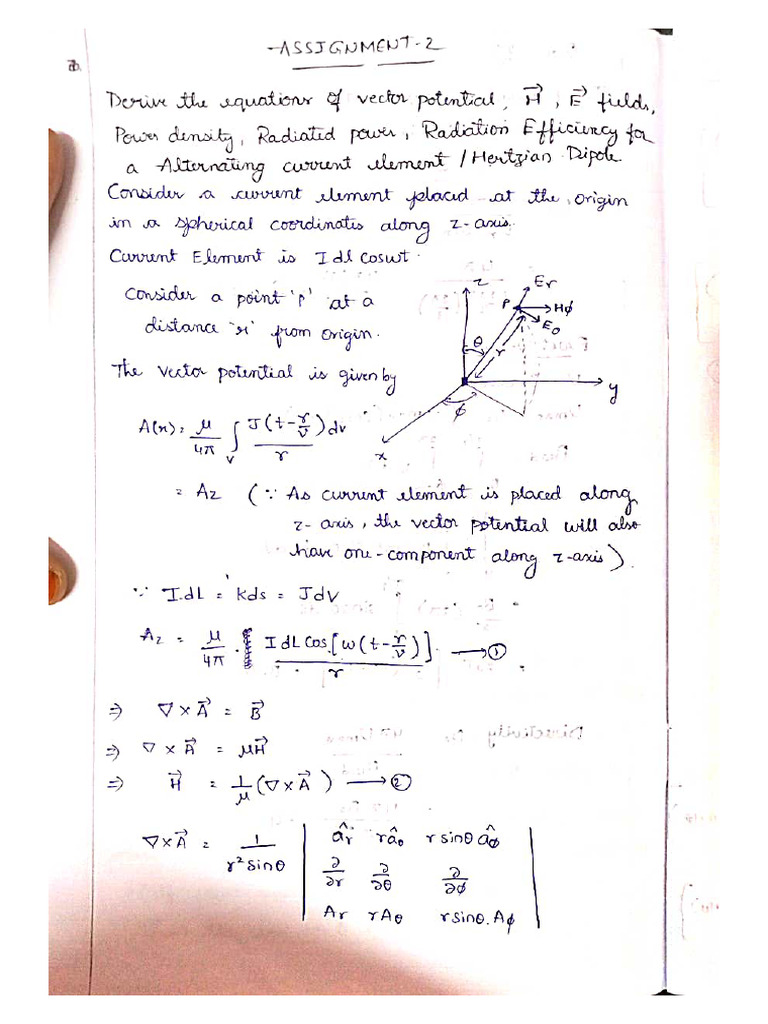 ASSIGNMENT-2
Derive the equations of vector potential, H⃗, E⃗ fields,
Power density, Radiated power, Radiation Efficiency for
a Alternating current element / Hertzian Dipole.
Consider a current element placed at the origin
in a spherical coordinates along z-axis.
Current Element is Idl coswt.
Consider a point 'P' at a
distance 'r' from origin.
The vector potential is given by
z Er
P Hϕ
Eθ
θ r
y
ϕ
x
A(r) = μ/4π ∫v J(t-r/v)dv / r
= Az (∵ As current element is placed along
z-axis, the vector potential will also
have one-component along z-axis).
∵ I.dL = Kds = Jdv
Az = μ/4π . IdL Cos[ω(t-r/v)] / r → ①
⇒ ∇×A⃗ = B⃗
⇒ ∇×A⃗ = μH⃗
⇒ H⃗ = 1/μ (∇×A⃗) → ②
∇×A⃗ = 1/r²sinθ | âr râθ rsinθ âϕ |
| ∂/∂r ∂/∂θ ∂/∂ϕ |
| Ar rAθ rsinθ.Aϕ |